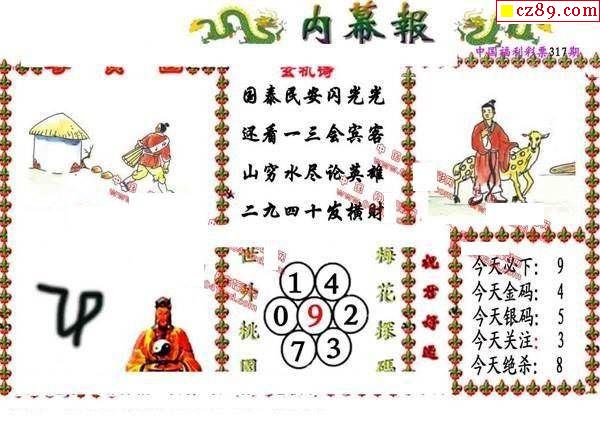 cz89.com
内幕報
中国福利彩票317期
玄机诗
国泰民安闪光光
还看一三会宾客
山穷水尽论英雄
二九四十发横财
世外桃園
1 4
0 9 2
7 3
梅花探码
祝君好运
今天必下: 9
今天金码: 4
今天银码: 5
今天关注: 3
今天绝杀: 8